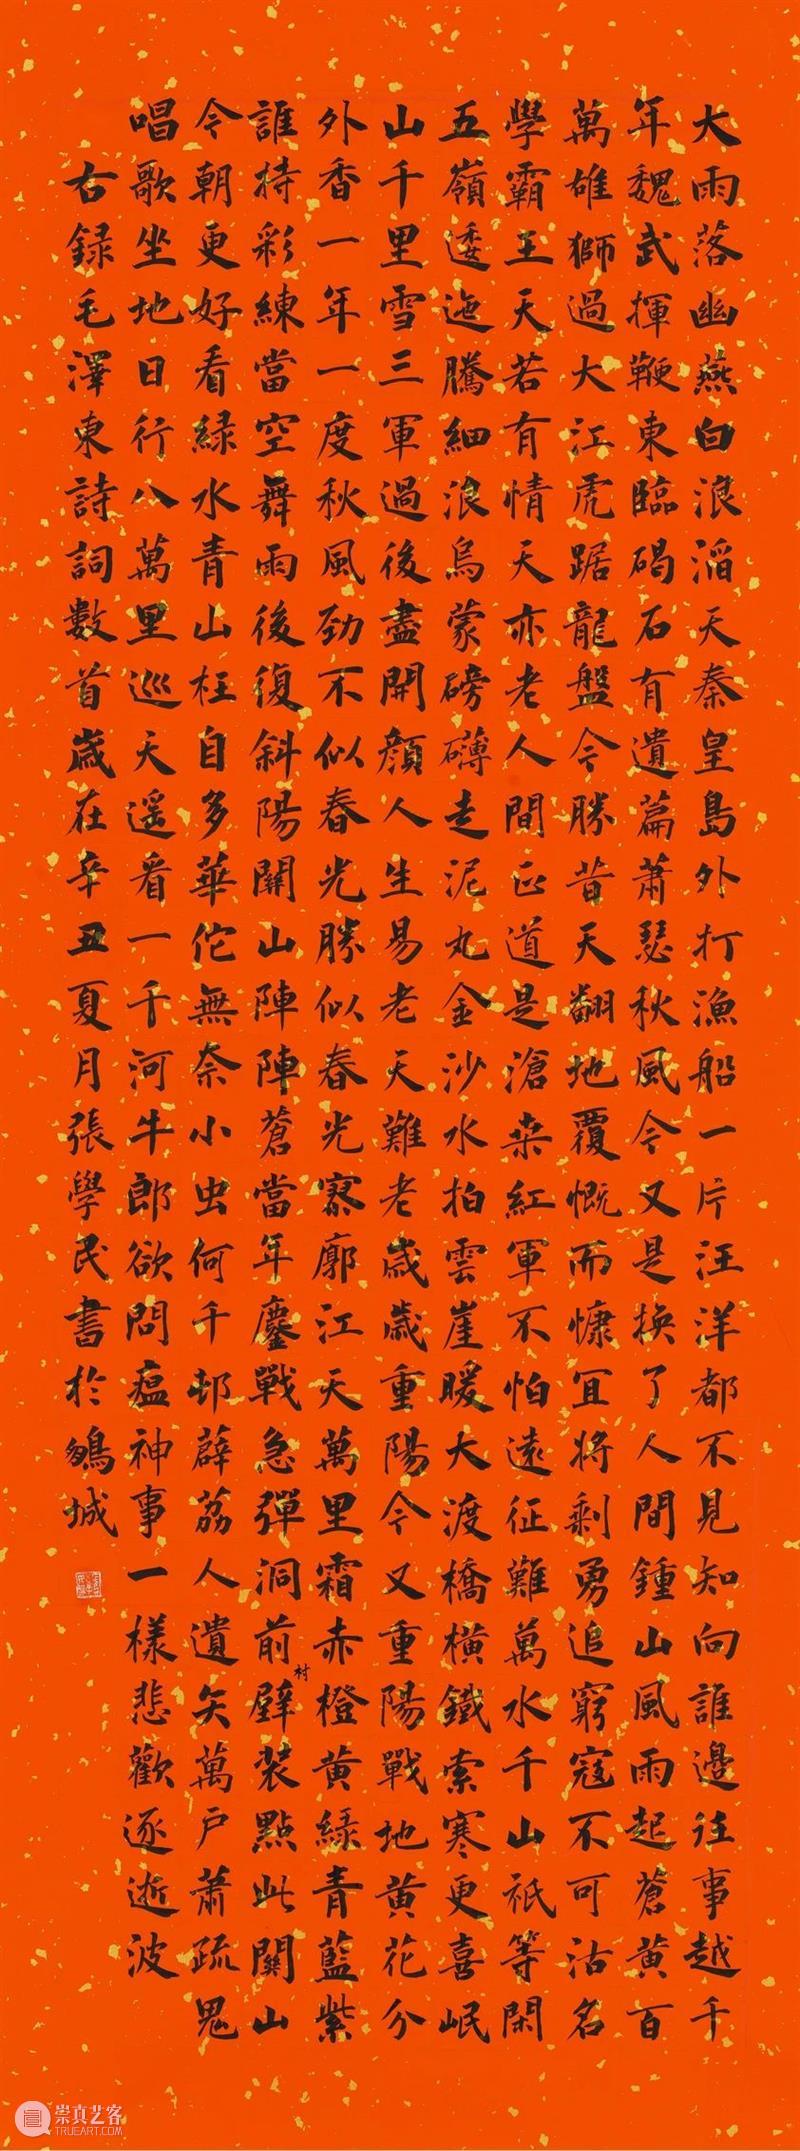 大雨落幽燕白浪滔天秦皇島外打漁船一片汪洋都不見知向誰邊往事越千
年魏武揮鞭東臨碣石有遺篇蕭瑟秋風今又是換了人間鍾山風雨起蒼黃百
萬雄獅過大江虎踞龍盤今勝昔天翻地覆慨而慷宜將剩勇追窮寇不可沽名
學霸王天若有情天亦老人間正道是滄桑紅軍不怕遠征難萬水千山祇等閑
五嶺逶迤騰細浪烏蒙磅礴走泥丸金沙水拍雲崖暖大渡橋橫鐵索寒更喜岷
山千里雪三軍過後盡開顏人生易老天難老歲歲重陽今又重陽戰地黃花分
外香一年一度秋風勁不似春光勝似春光寥廓江天萬里霜赤橙黃綠青藍紫
誰持彩練當空舞雨後復斜陽關山陣陣蒼當年鏖戰急彈洞前村壁裝點此關山
今朝更好看綠水青山枉自多華佗無奈小虫何千邨薜荔人遺矢萬戶蕭疏鬼
唱歌坐地日行八萬里巡天遥看一千河牛郎欲問瘟神事一樣悲歡逐逝波
右録毛澤東詩詞數首歲在辛丑夏月張學民書於城
崇真艺客
TRUEART.COM